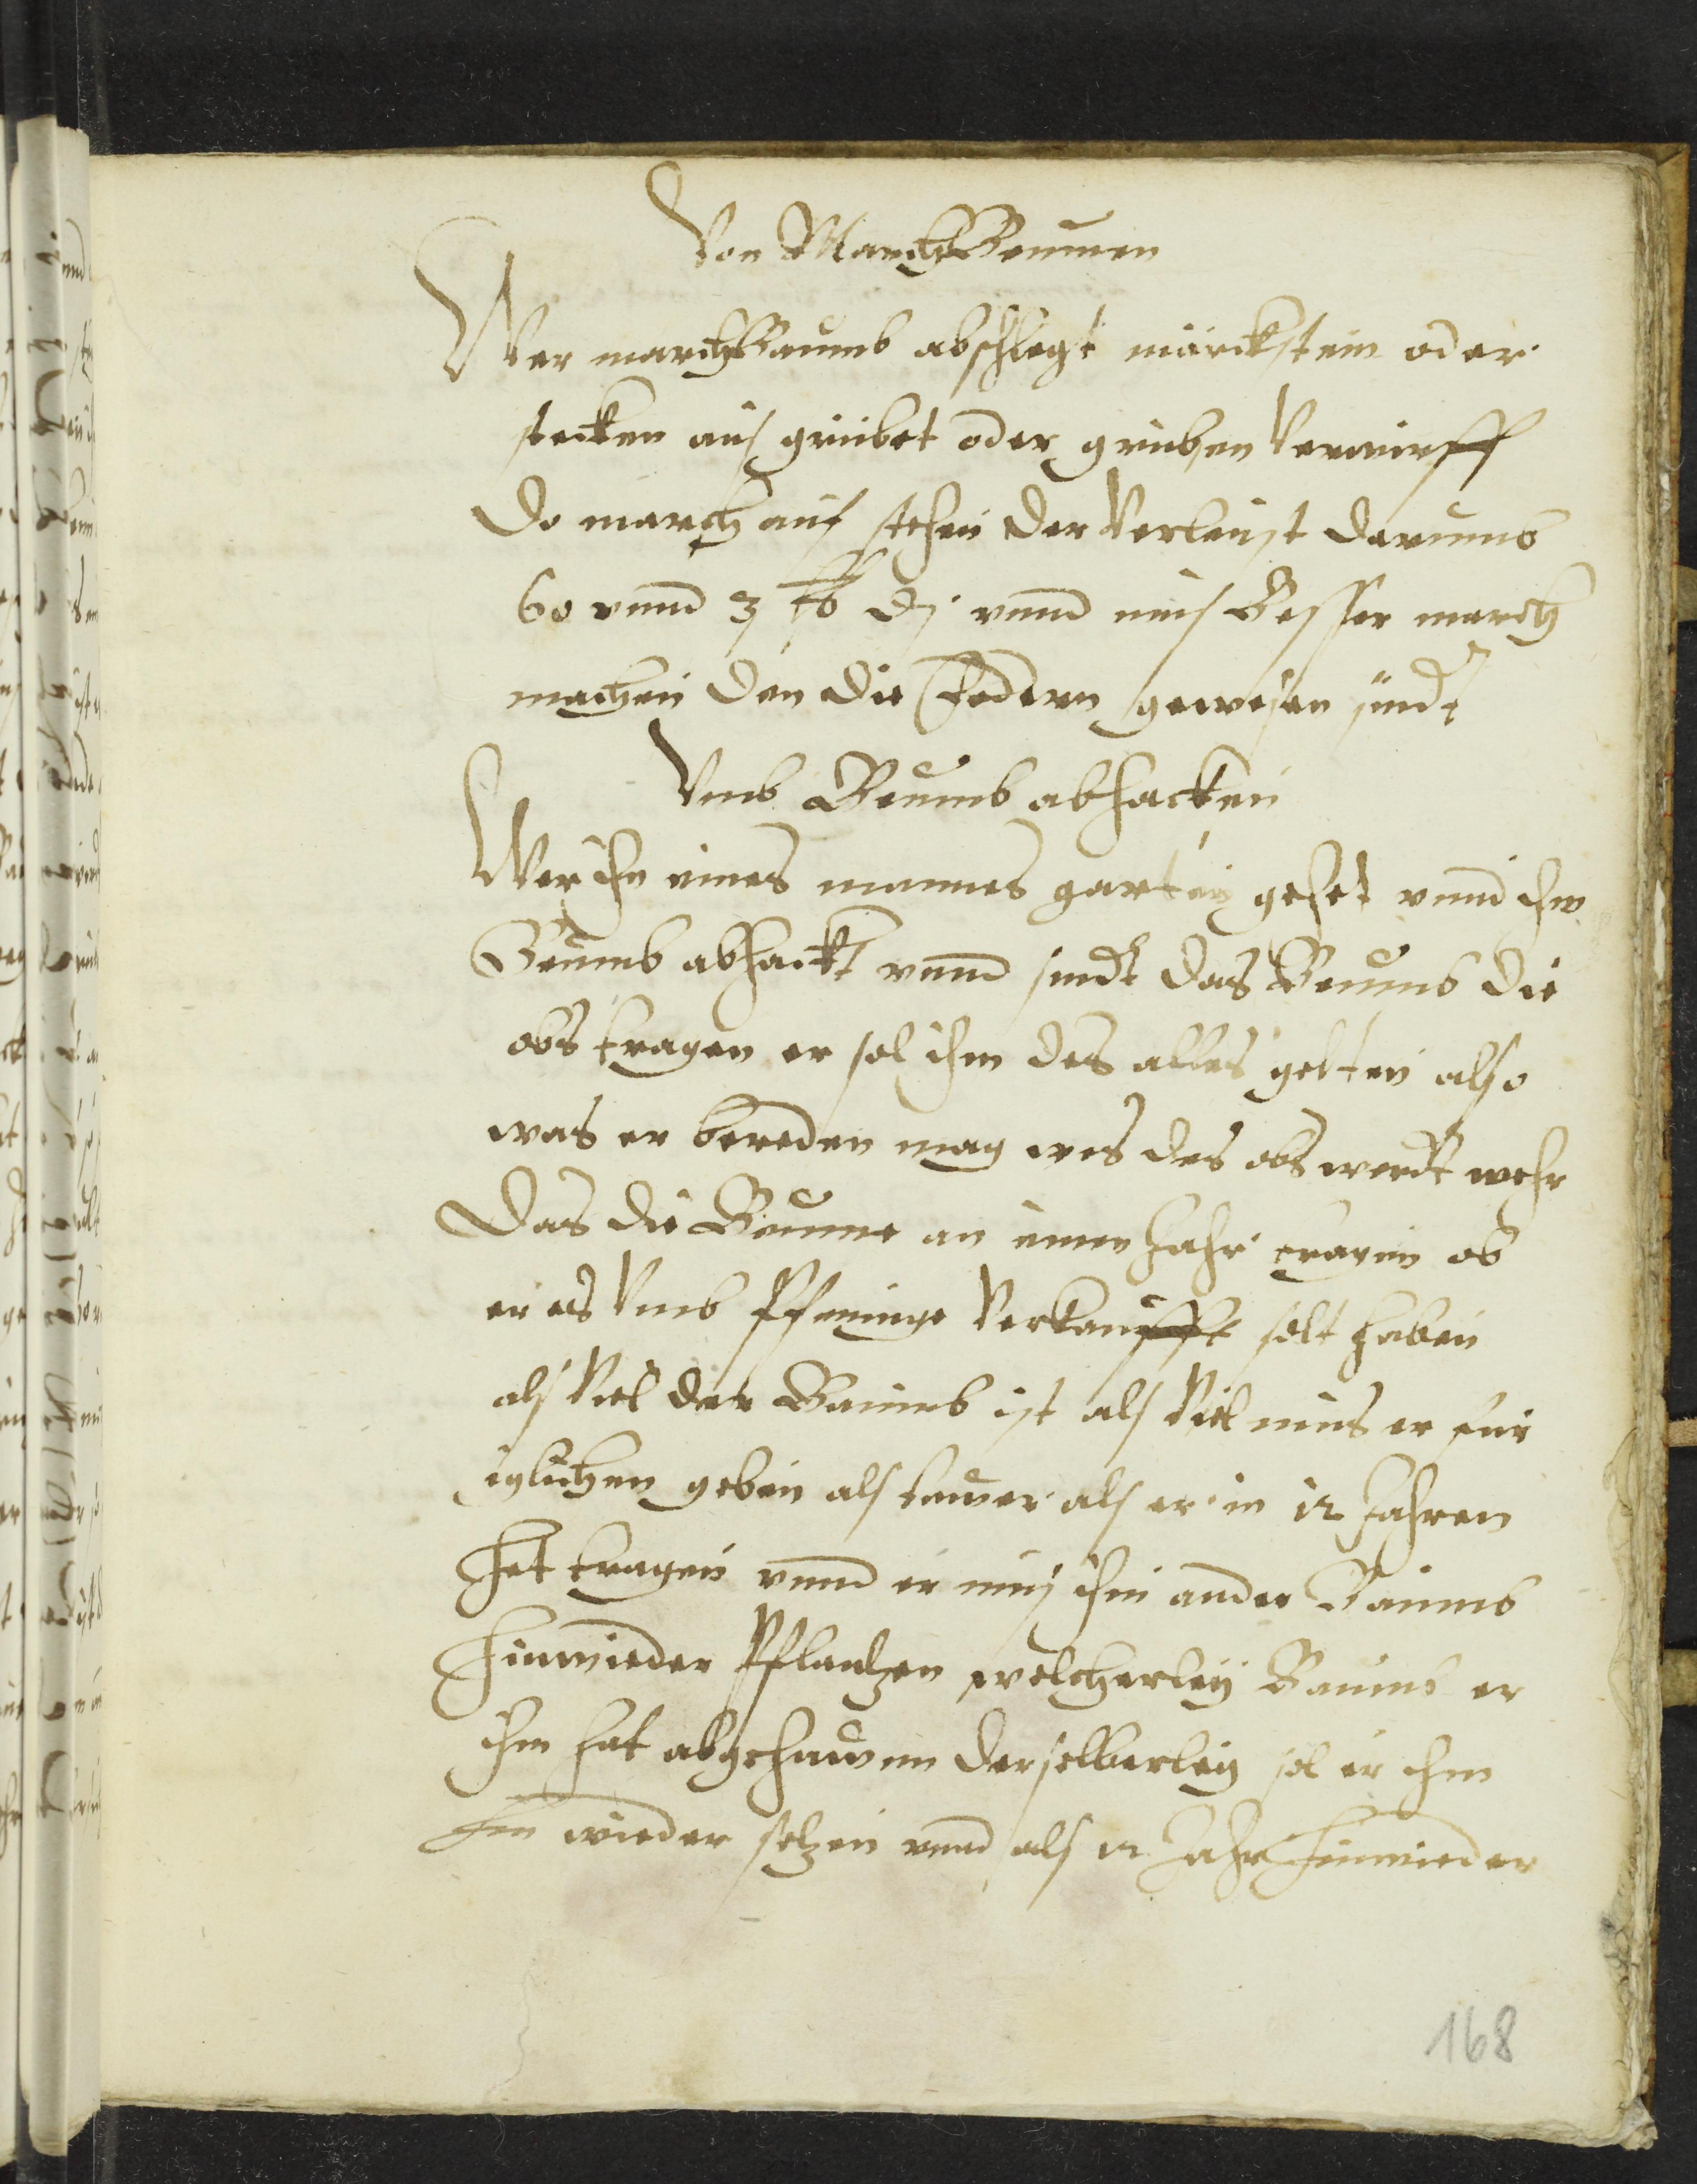 Von MarchBeumen
Wer marchBaumb abschlegt märckstein oder
stecken aus grubet oder gruben Verwirfft
Do march auf stehen der Verleust darumb
60 vnnd 3 lb dj vnnd mus Besser march
machen den die Fodern gewesen sindt
Vmb Beumb abhacken
Wer Jn eines mannes garten gehet vnnd ihm
Beumb abhackt vnnd sindt das Beumb die
obs tragen er sol ihm des alles gelten also
was er bereden mag wes des obs werdt wehr
Das die Beume an einen Jahr tragen ob
er es Vmb Pfeninge Verkaufft solt haben
als Viel der Baumb ist als Viel mus er fur
iglichen geben als tewer als er in 12 Jahren
Het tragen vnnd er mus ihm ander Baumb
hinwieder Pflantzen welcherley Baumb er
ihm hat abgehawen derselberley sol er ihm
hin wieder setzen vnnd als 12 Jahr hinwieder
168